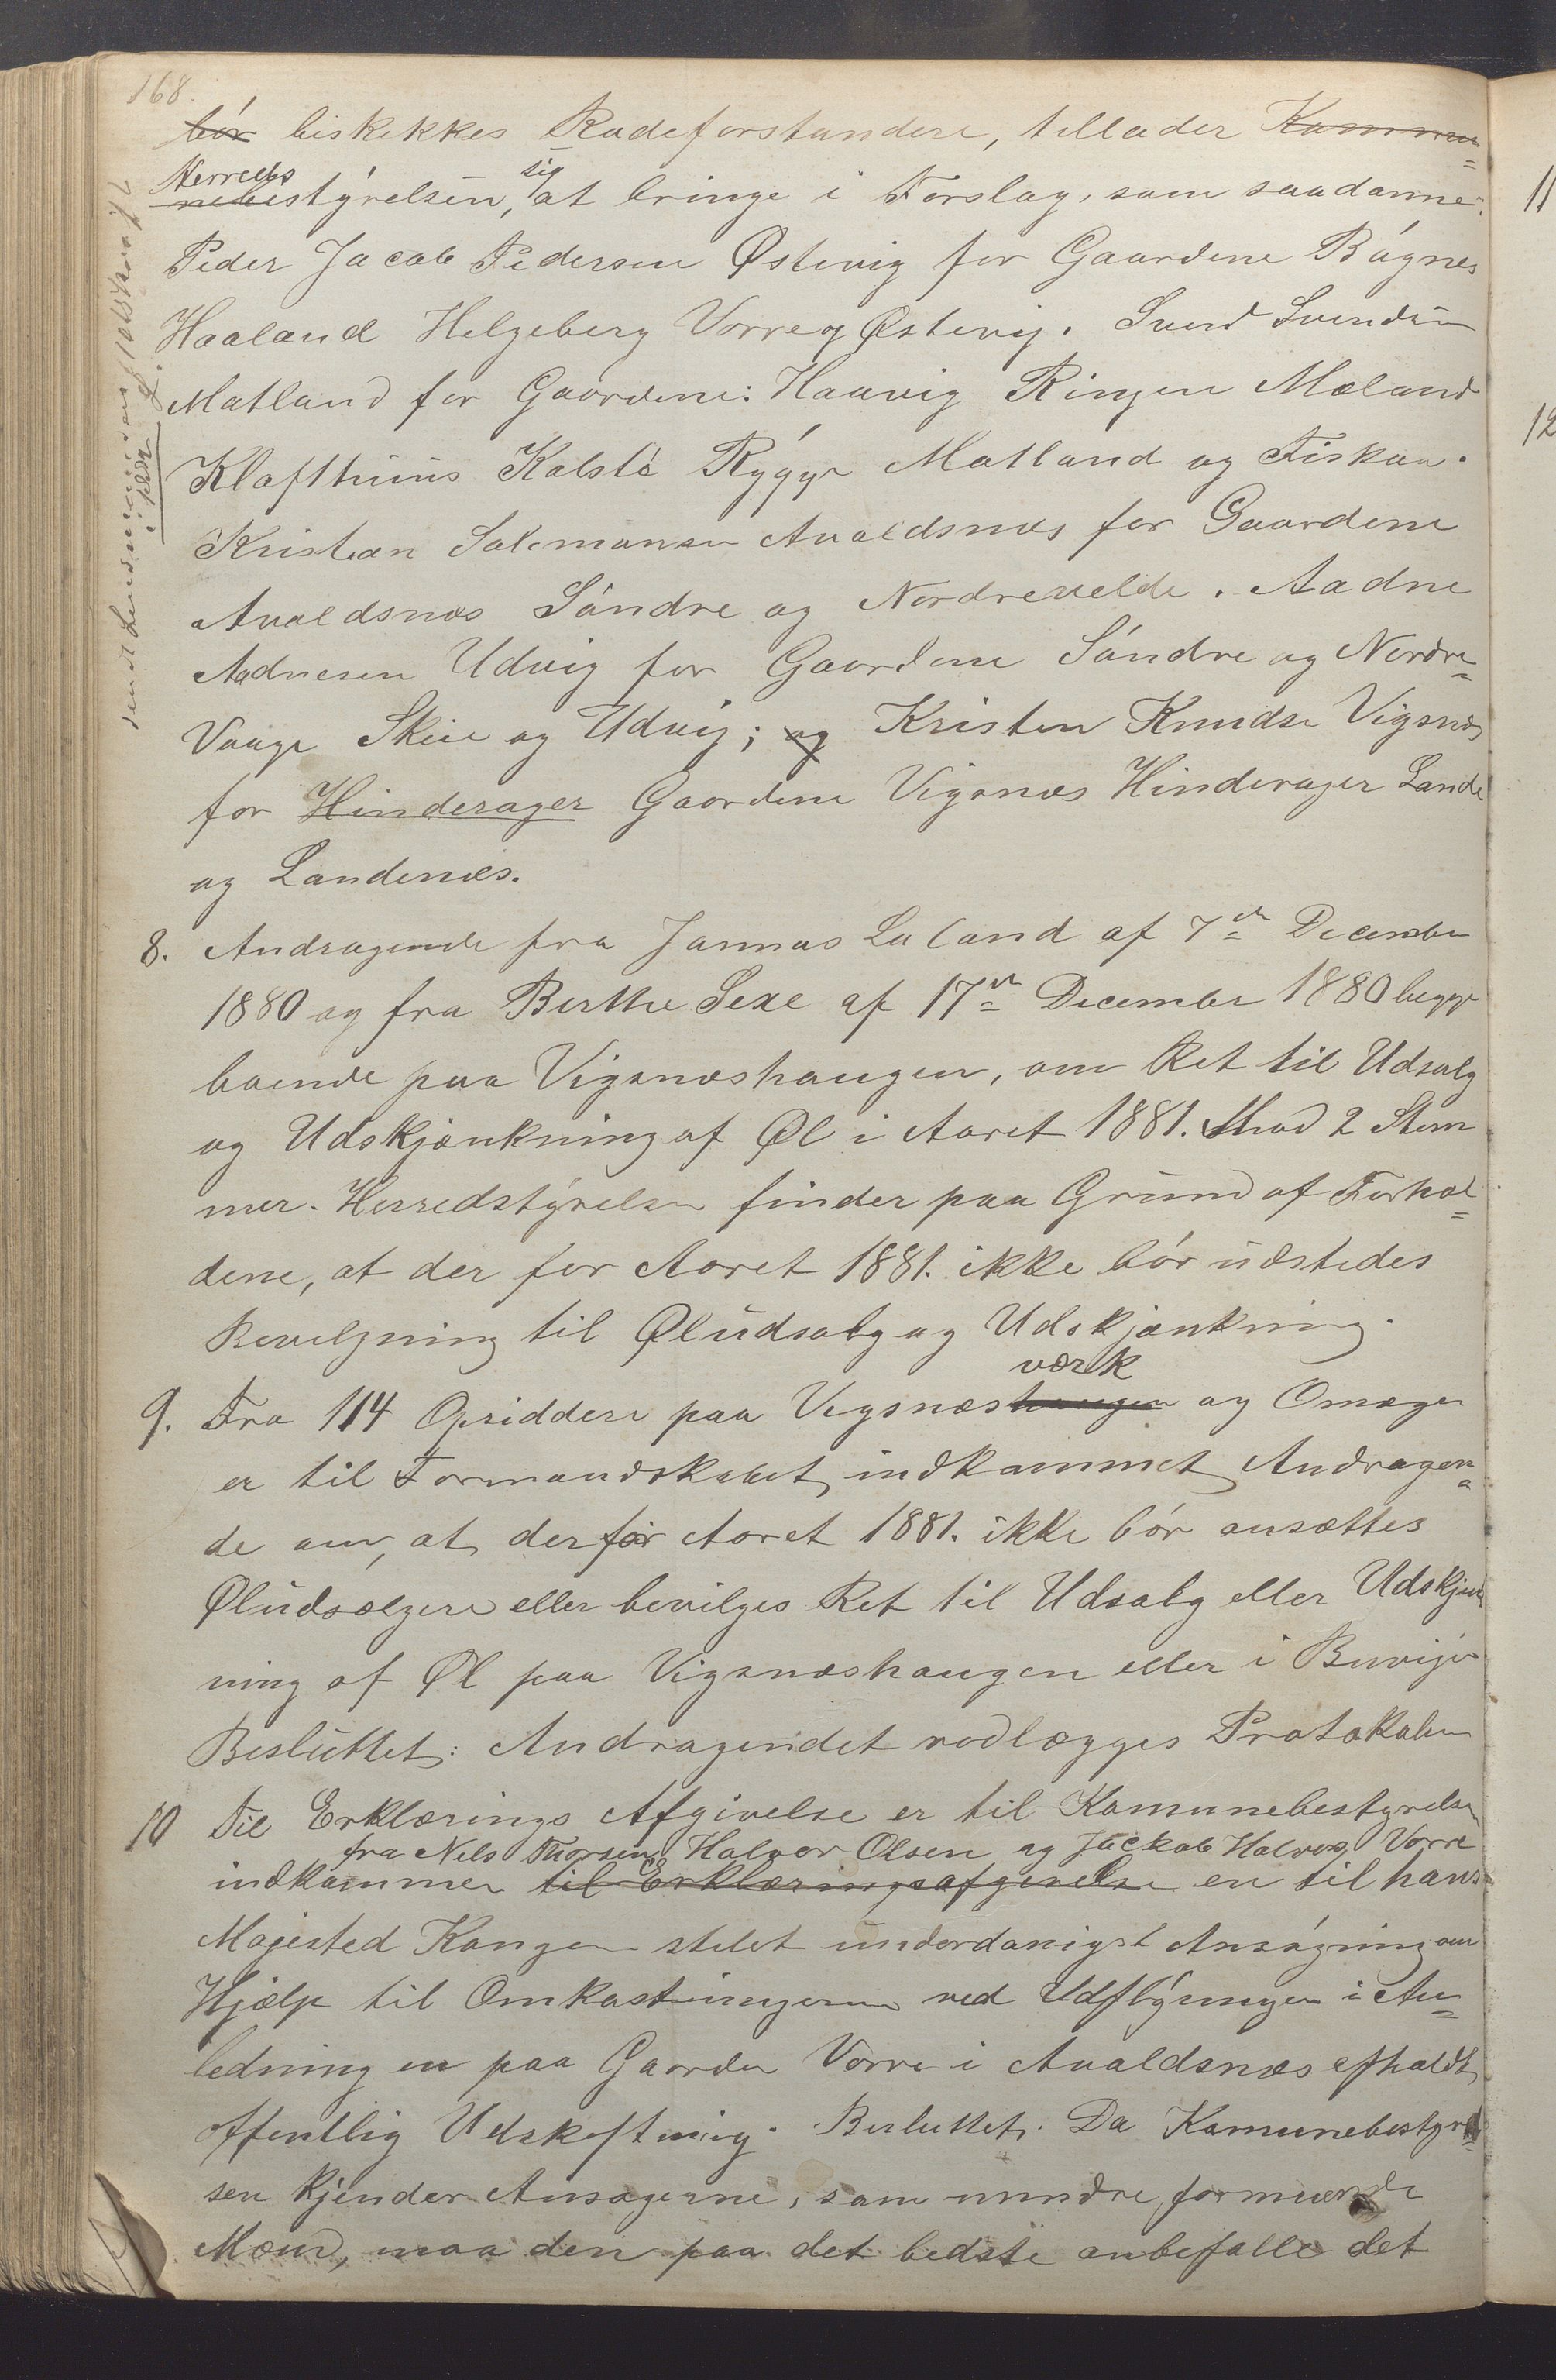 168.
bör biskikkes Rodeforstandere, tillader Kommu=
Herreds sig
nebestyrelsen, at bringe i Forslag, som saadanne:
Peder Jacob Pedersen Østevig for Gaardene Bögnes
Haaland Helgeberg Vorre og Østevig. Svend Svendsen
Matland for Gaardene: Haavig Ringen Mæland
Klafthuus Kalstö Rygge Matland og Fiskaa.
Kristian Salemansen Avaldsnæs for Gaardene
Avaldsnæs Söndre og Nordrevelde. Aadne
Aadnesen Udvig for Gaardene Söndre og Nordre=
Vaage Skeie og Udvig; og Kristen Knudsen Vigsnæs
for Hinderager Gaardene Vigsnæs Hinderager Lande
og Landenæs.
8. Andragende fra Jannas Laland af 7de December
1880 og fra Berthe Sexe af 17de December 1880 begge
boende paa Vigsnæshaugen, om Ret til Udsalg
og Udskjænkning af Øl i Aaret 1881. Mod 2 Stem
mer. Herredstyrelsen finder paa Grund af Forhol=
dene, at der for Aaret 1881. ikke bör udstedes
Bevilgning til Øludsalg og Udskjænkning.
værk
9. Fra 114 Opsiddere paa Vigsnæshaugen og Omægn
er til Formandskabet indkommet Andragen=
de om, at der för Aaret 1881. ikke bör ansættes
Øludsælgere eller bevilges Ret til Udsalg eller Udskjænk
ning af Øl paa Vigsnæshaugen eller i
Besluttet: Andragendet vedlægges Protokolen
10 Til Erklærings Afgivelse er til Komunebestyrelsen
fra Nels Thorsen, Halvor Olsen og Jackob Halvors Vorre
indkommen til Erklæringsafgivelse en til hans
Majested Kongen stilet underdanigst Ansögning om
Hjælp til Omkostningerne ved Udflytningen i An=
ledning en paa Gaarden Vorre i Avaldsnæs afholdt
offentlig Udskiftning. Besluttet. Da Komunebestyrel=
sen kjender Ansøgerne, som mindre formuende
Mænd, maa den paa det bedste anbefalle det